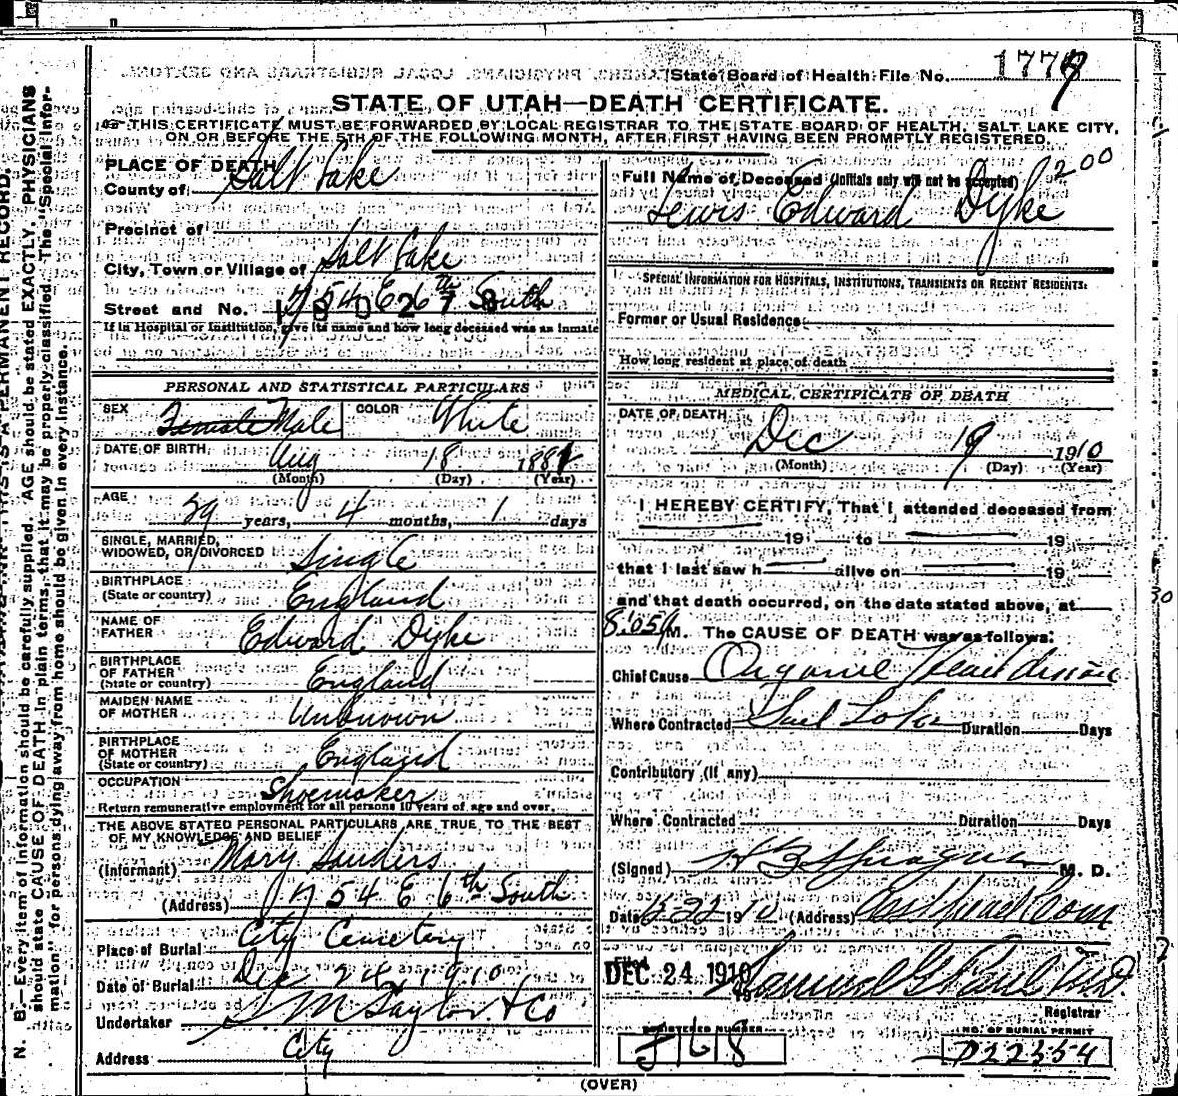 State Board of Health File No. 1779
STATE OF UTAH—DEATH CERTIFICATE.
THIS CERTIFICATE MUST BE FORWARDED BY LOCAL REGISTRAR TO THE STATE BOARD OF HEALTH, SALT LAKE CITY,
ON OR BEFORE THE 5TH OF THE FOLLOWING MONTH, AFTER FIRST HAVING BEEN PROMPTLY REGISTERED.
PLACE OF DEATH
County of Salt Lake
Precinct of
City, Town or Village of Salt Lake
Street and No. 754 E 6th South
If in Hospital or Institution, give its name and how long deceased was as inmate
PERSONAL AND STATISTICAL PARTICULARS
SEX Female Male COLOR White
DATE OF BIRTH Aug 18 1881
(Month) (Day) (Year)
AGE 29 years, 4 months, 1 days
SINGLE, MARRIED,
WIDOWED, OR DIVORCED Single
BIRTHPLACE
(State or country) England
NAME OF
FATHER Edward Dyke
BIRTHPLACE
OF FATHER
(State or country) England
MAIDEN NAME
OF MOTHER Unknown
BIRTHPLACE
OF MOTHER
(State or country) England
OCCUPATION Shoemaker
Return remunerative employment for all persons 10 years of age and over.
THE ABOVE STATED PERSONAL PARTICULARS ARE TRUE TO THE BEST
OF MY KNOWLEDGE AND BELIEF
(Informant) Mary Sanders
(Address) 754 E 6th South
Place of Burial City Cemetery
Date of Burial Dec 24, 1910
Undertaker S M Taylor & Co
Address City
Full Name of Deceased (Initials only will not be accepted) 200
Lewis Edward Dyke
SPECIAL INFORMATION FOR HOSPITALS, INSTITUTIONS, TRANSIENTS OR RECENT RESIDENTS:
Former or Usual Residence
How long resident at place of death
MEDICAL CERTIFICATE OF DEATH
DATE OF DEATH
Dec 19 1910
(Month) (Day) (Year)
I HEREBY CERTIFY, That I attended deceased from
19 to 19
that I last saw h alive on 19
and that death occurred, on the date stated above, at
8:05 A M. The CAUSE OF DEATH was as follows:
Chief Cause Organic Heart disease
Where Contracted Salt Lake Duration Days
Contributory (if any)
Where Contracted Duration Days
(Signed) H B Sprague M. D.
Date 12-22 1910 (Address)
Filed
DEC 24 1910 Samuel G Paul M.D.
Registrar
REGISTERED NUMBER NO. OF BURIAL PERMIT
J168 D22354
(OVER)
N. B.—Every item of information should be carefully supplied. AGE should be stated EXACTLY. PHYSICIANS
should state CAUSE OF DEATH in plain terms, that it may be properly classified. The "Special Infor-
mation" for persons dying away from home should be given in every instance.